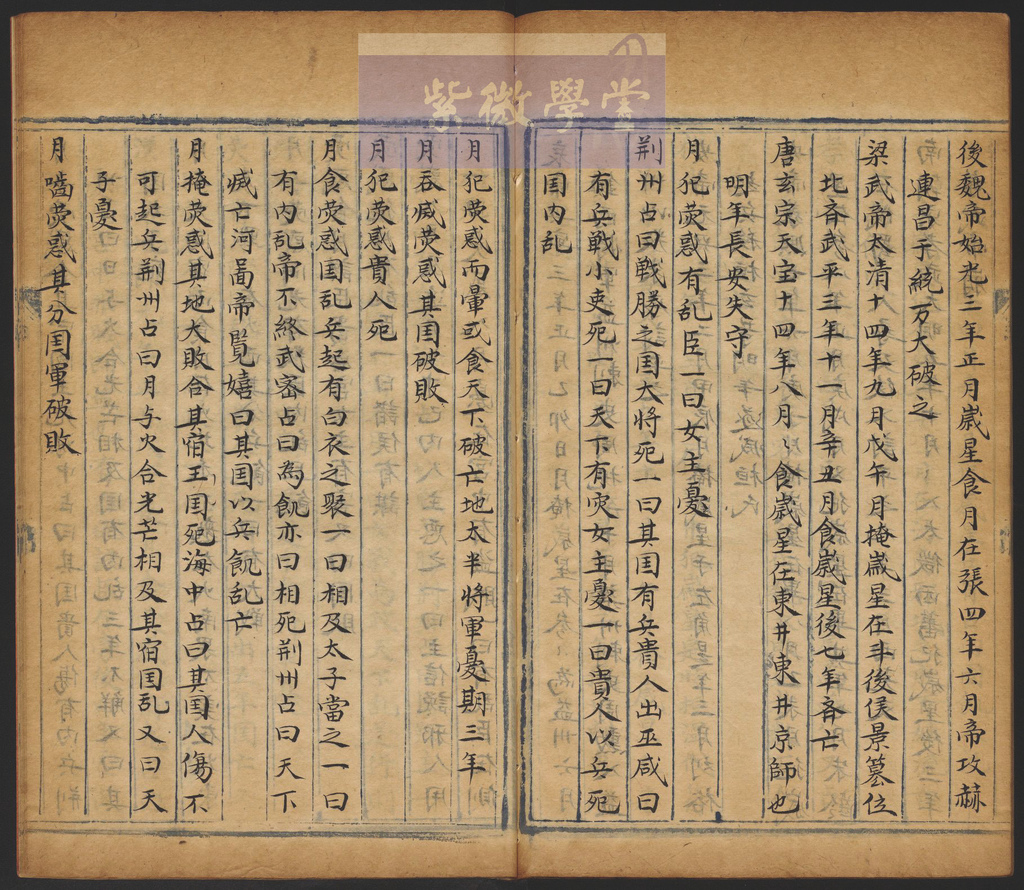 紫微學堂
後魏帝始光三年正月歲星食月在張四年六月帝攻赫
連昌于統万大破之
梁武帝太清十四年九月戊午月掩歲星在斗後侯景篡位
北斉武平三年十一月辛丑月食歲星後七年斉亡
唐玄宗天宝十四年八月〻食歲星在東井東井京師也
明年長安失守
月犯熒惑有乱臣一曰女主憂
荆州占曰戦勝之国大将死一曰其国有兵貴人出巫咸曰
有兵戦小吏死一曰天下有灾女主憂一曰貴人以兵死
国内乱
月犯熒惑而暈或食天下破亡地太半将軍憂期三年
月吞滅熒惑其国破敗
月犯熒惑貴人死
月食熒惑国乱兵起有白衣之聚一曰相及太子當之一曰
有内乱帝不終武密占曰為飢亦曰相死荆州占曰天下
滅亡河啚帝覧嬉曰其国以兵飢乱亡
月掩熒惑其地大敗合其宿王国死海中占曰其国人傷不
可起兵荆州占曰月与火合光芒相及其宿国乱又曰天
子憂
月嚙熒惑其分国軍破敗